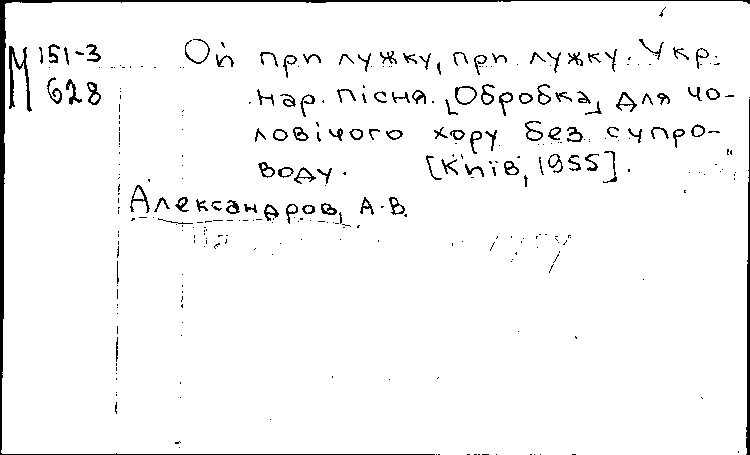 М 151-3
628
Ой при лужку, при лужку. Укр.
нар. пісня. [Обробка] для чо-
ловічого хору без супро-
воду. [Київ, 1955].
Александров, А.В.